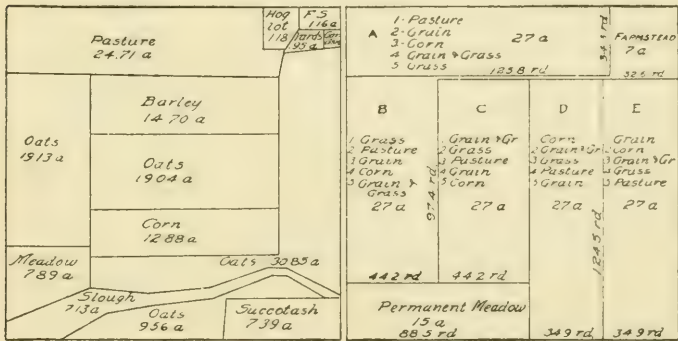 Pasture
24.71 a
Hog
lot
118
F S
116a
Yards
95a
Barley
14 70 a
Oats
1913 a
Oats
1904 a
Corn
1288 a
Meadow
789 a
Oats 3085a
Slough
713a
Oats
956 a
Succotash
739 a
A
1- Pasture
2- Grain
3- Corn
4 Grain & Grass
5 Grass
27 a
1258 rd
FARMSTEAD
7 a
326 rd
B
1 Grass
2 Pasture
3 Grain
4 Corn
5 Grain &
Grass
27 a
974 rd
442 rd
C
1 Grain & Gr
2 Grass
3 Pasture
4 Grain
5 Corn
27 a
442 rd
D
Corn
2 Grain & Gr
3 Grass
4 Pasture
5 Grain
27 a
1245 rd
349 rd
E
Grain
2 Corn
3 Grain & Gr
4 Grass
5 Pasture
27 a
349 rd
Permanent Meadow
15 a
885 rd